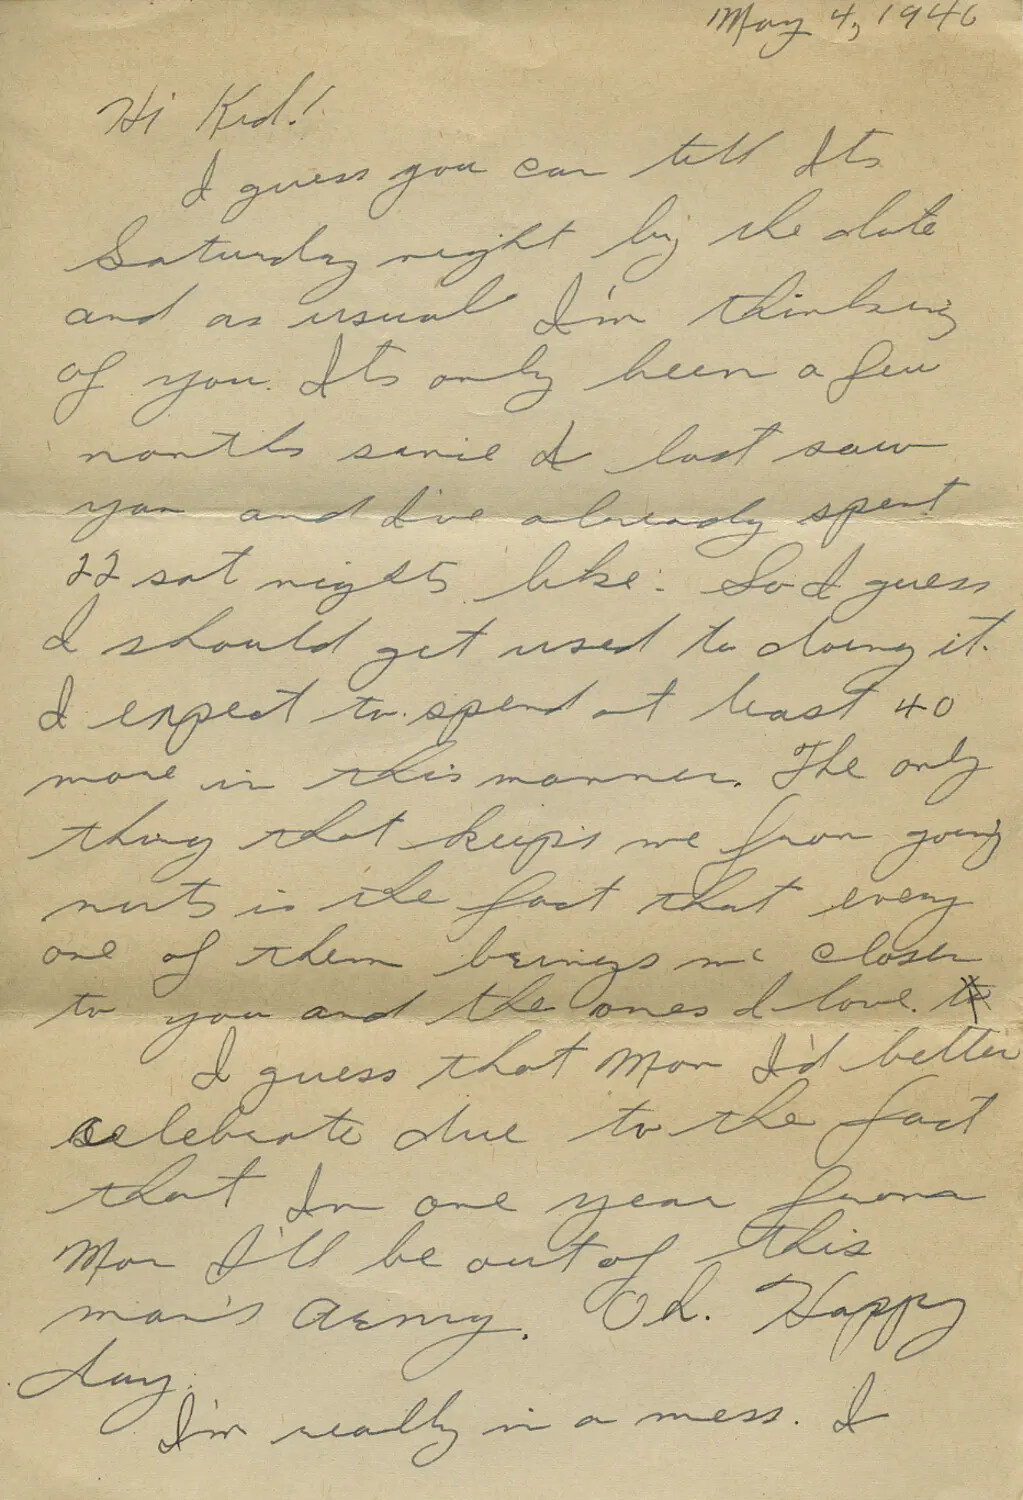 May 4, 1946
Hi Kid!
I guess you can tell Its
Saturday night by the date
and as usual I'm thinking
of you. Its only been a few
months since I last saw
you and I've already spent
22 sat nights like. So I guess
I should get used to doing it.
I expect to spend at least 40
more in this manner. The only
thing that keeps me from going
nuts is the fact that every
one of them brings me closer
to you and the ones I love.
I guess that Mon I'd better
celebrate due to the fact
that In one year from
Mon I'll be out of this
man's Army. Oh. Happy
day.
I'm really in a mess. I